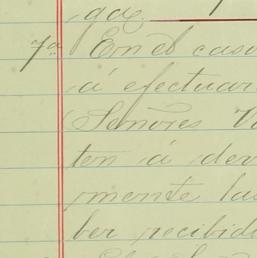 gaz
7ª En el caso
á efectuar
Señores
ten á dev
mente las
ber recibid